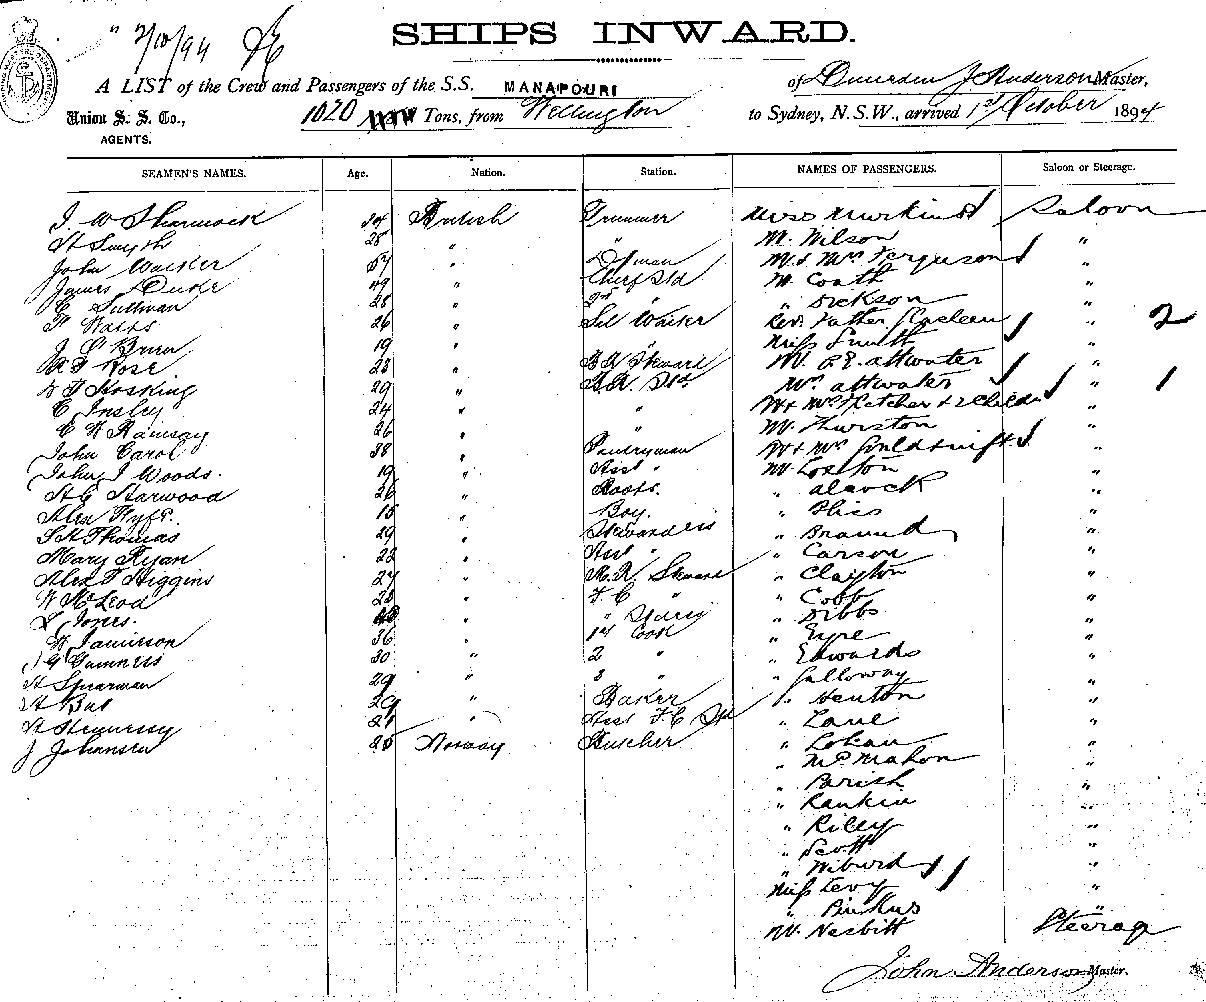 " 2/10/94
SHIPS INWARD.
A LIST of the Crew and Passengers of the S.S. MANAPOURI of Dunedin J Anderson Master,
Union S. S. Co., 1020 Tons, from Wellington to Sydney, N.S.W., arrived 1st October 1894
AGENTS.
SEAMEN'S NAMES. Age. Nation. Station. NAMES OF PASSENGERS. Saloon or Steerage.
J W Sharmock 34 British Trimmer Miss Saloon
H Smyth 28 " " Mr. Wilson "
John Walker 57 " Mr & Mrs Ferguson "
James Duke 49 " Chief Std Mr Coath "
C Sullivan 28 " 2nd " " Dickson "
H Watts 26 " Sal Waiter Rev. Father " 2
J O'Brien 19 " " Miss Smith "
Rose 23 " Steward Mr. attwater "
Hosking 29 " Std. Mrs attwater " 1
C Insley 24 " " Mr & Mrs Fletcher & 2 Childn "
C H Ramsay 26 " " Mr. Thurston "
John Carol 38 " Pantryman Mr & Mrs "
John J Woods. 19 " Asst " Mr. "
Harwood 26 " Boots. " alcock "
Alex Fyfe. 15 " Boy. " Bliss "
Thomas 29 " Stewardess " Braund "
Mary Ryan 22 " Asst " " Carson "
Alex T Higgins 27 " Steward " Clayton "
McLeod 28 " F C " " Cobb "
Jones. " " " Dibbs "
H Jamieson 36 " 1st Cook " Eyre "
30 " 2 " " Edwards "
H Spearman 29 " 3 " " Galloway "
H Bat 29 " Baker " Henton "
H Hennessy 21 " Asst F C Std " Lane "
J Johansen 25 Norway Butcher " "
" McMahon "
" Parish "
" Rankin "
" Riley "
" Scott "
" Wiburd "
Miss Levy "
" Pinkus "
Mr. Nesbitt Steerage
John Anderson Master.